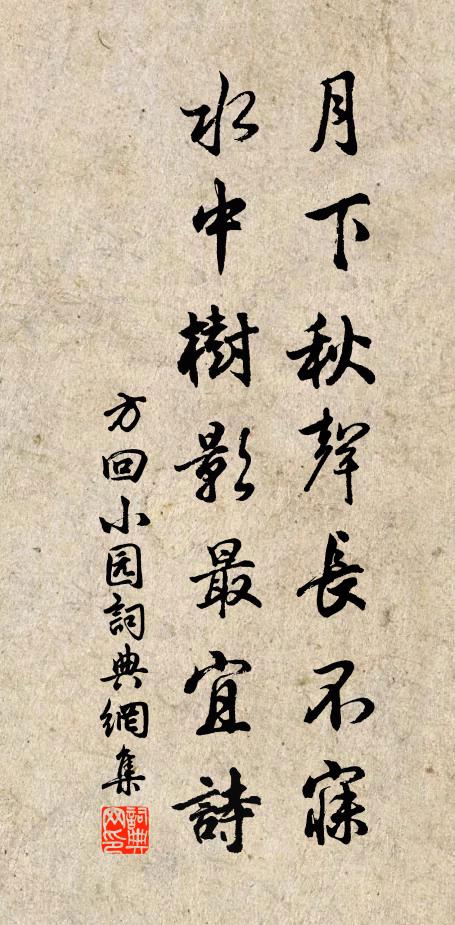 月下秋聲長不寐
水中樹影最宜詩
方回小园詞典網集
詞典网印